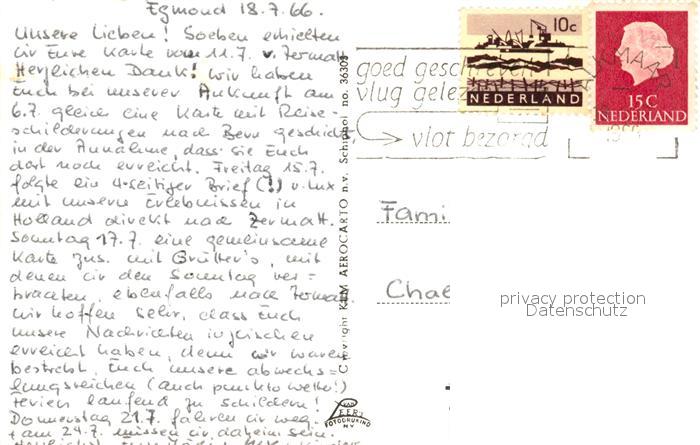 Egmond 18.7.66.
Unsere Lieben! Soeben erhielten
wir Eure Karte vom 11.7. v. Zermatt
Herzlichen Dank! Wir haben
Euch bei unserer Ankunft am
6.7. gleich eine Karte mit Reise-
schilderungen nach Bern geschickt,
in der Annahme, dass sie Euch
dort noch erreicht. Freitag 15.7.
folgte ein 4-seitiger Brief (!) v. uns
mit unseren Erlebnissen in
Holland direkt nach Zermatt.
Sonntag 17.7. eine gemeinsame
Karte zus. mit Grütter's, mit
denen wir den Sonntag ver=
brachten, ebenfalls nach Zermatt.
Wir hoffen sehr, dass Euch
unsere Nachrichten inzwischen
erreicht haben, denn wir waren
bestrebt, Euch unsere abwechs=
lungsreichen (auch punkto Wetter!)
Ferien laufend zu schildern!
Donnerstag 21.7. fahren wir weg
am 24.7. müssen wir daheim sein.
Copyright KLM AEROCARTO n.v. Schiphol no. 36308
VAN LEER'S
FOTODRUKIND
N.V.
10c
NEDERLAND
15C
NEDERLAND
goed geschreven
vlug gelez
vlot bezorgd
ALKMAAR
Fami
Chal
privacy protection
Datenschutz